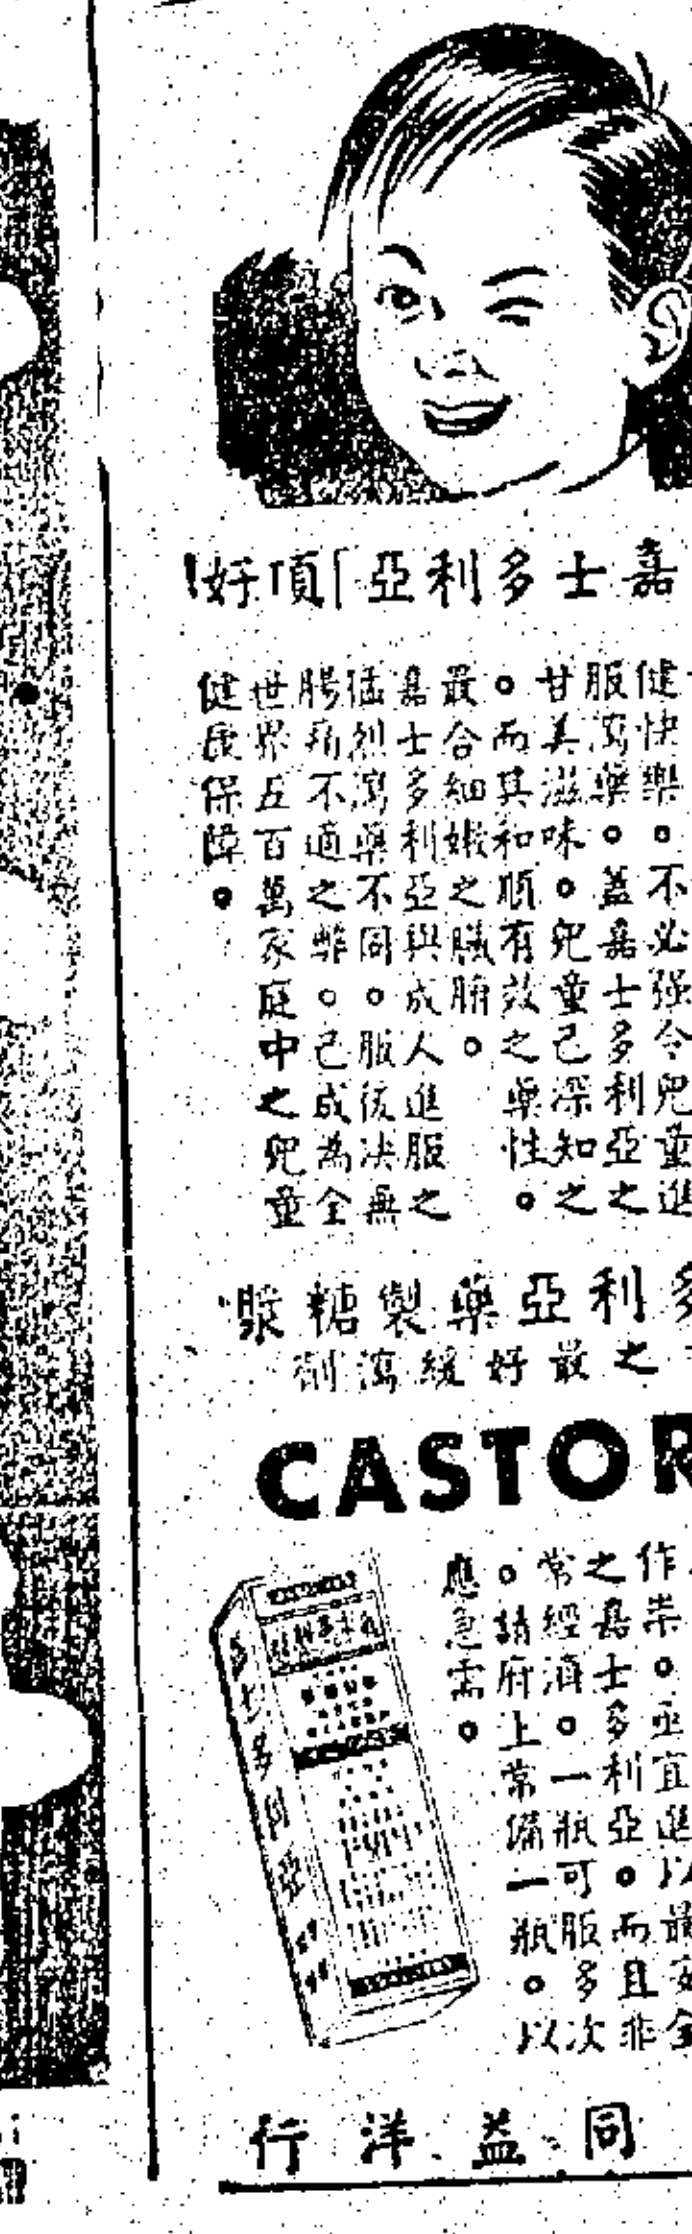 嘉士多利亞「頂好!
健快樂。不必强令兒童進
服瀉藥。蓋嘉士多利亞之
甘美滋味。兒童己深知之
。而其和順有效之藥性。
最合細嫩之臟腑。
嘉士多利亞與成人進服之
猛烈瀉藥不同。服後决無
腸痛不適之弊。己成為全
世界五百萬家庭中之兒童
健康保障。
多利亞藥製糖漿
之最好緩瀉劑
CASTOR
作祟。亟宜進以最安全
之嘉士多利亞。而且非
常經濟。一瓶可服多次
。請府上常備一瓶。以
應急需。
嘉士多利亞
同益洋行